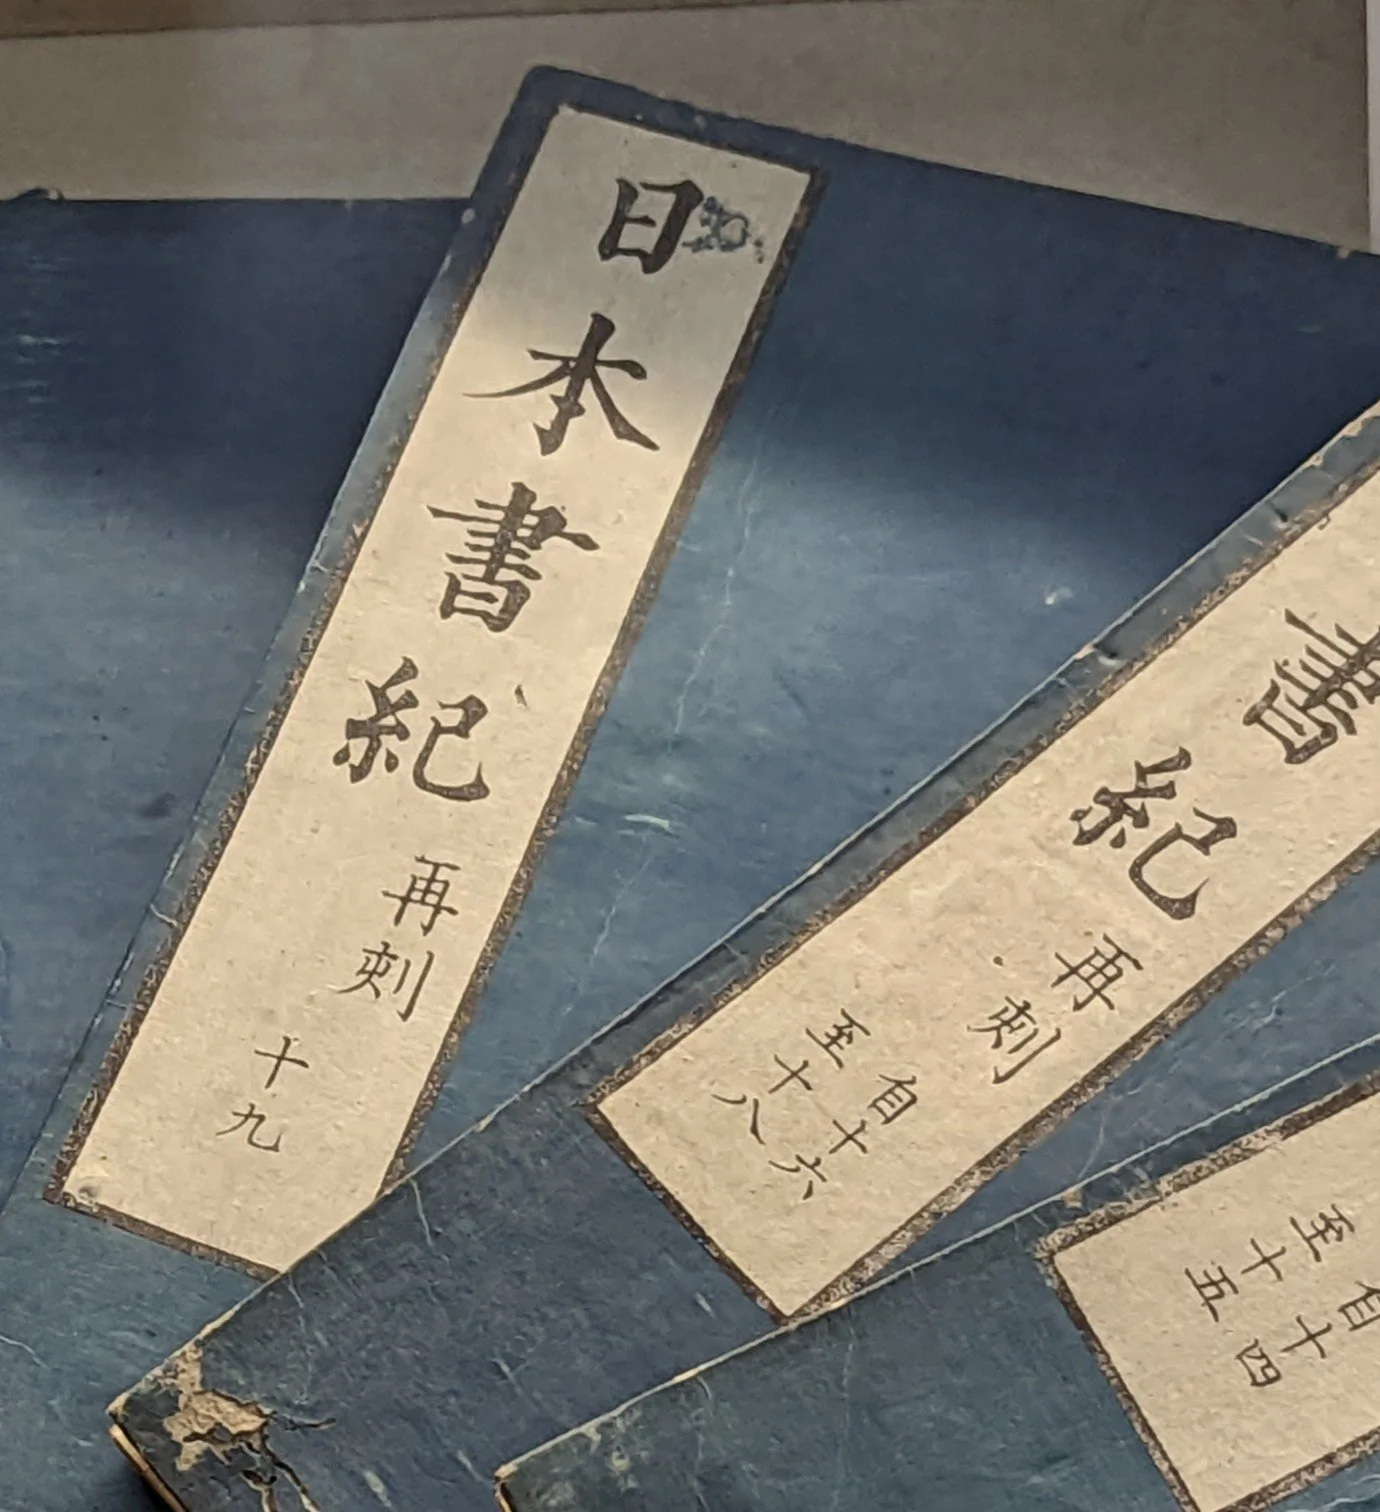 日本書紀
再刻
十九
書紀
再刻
自十六
至十八
自十四
至十五